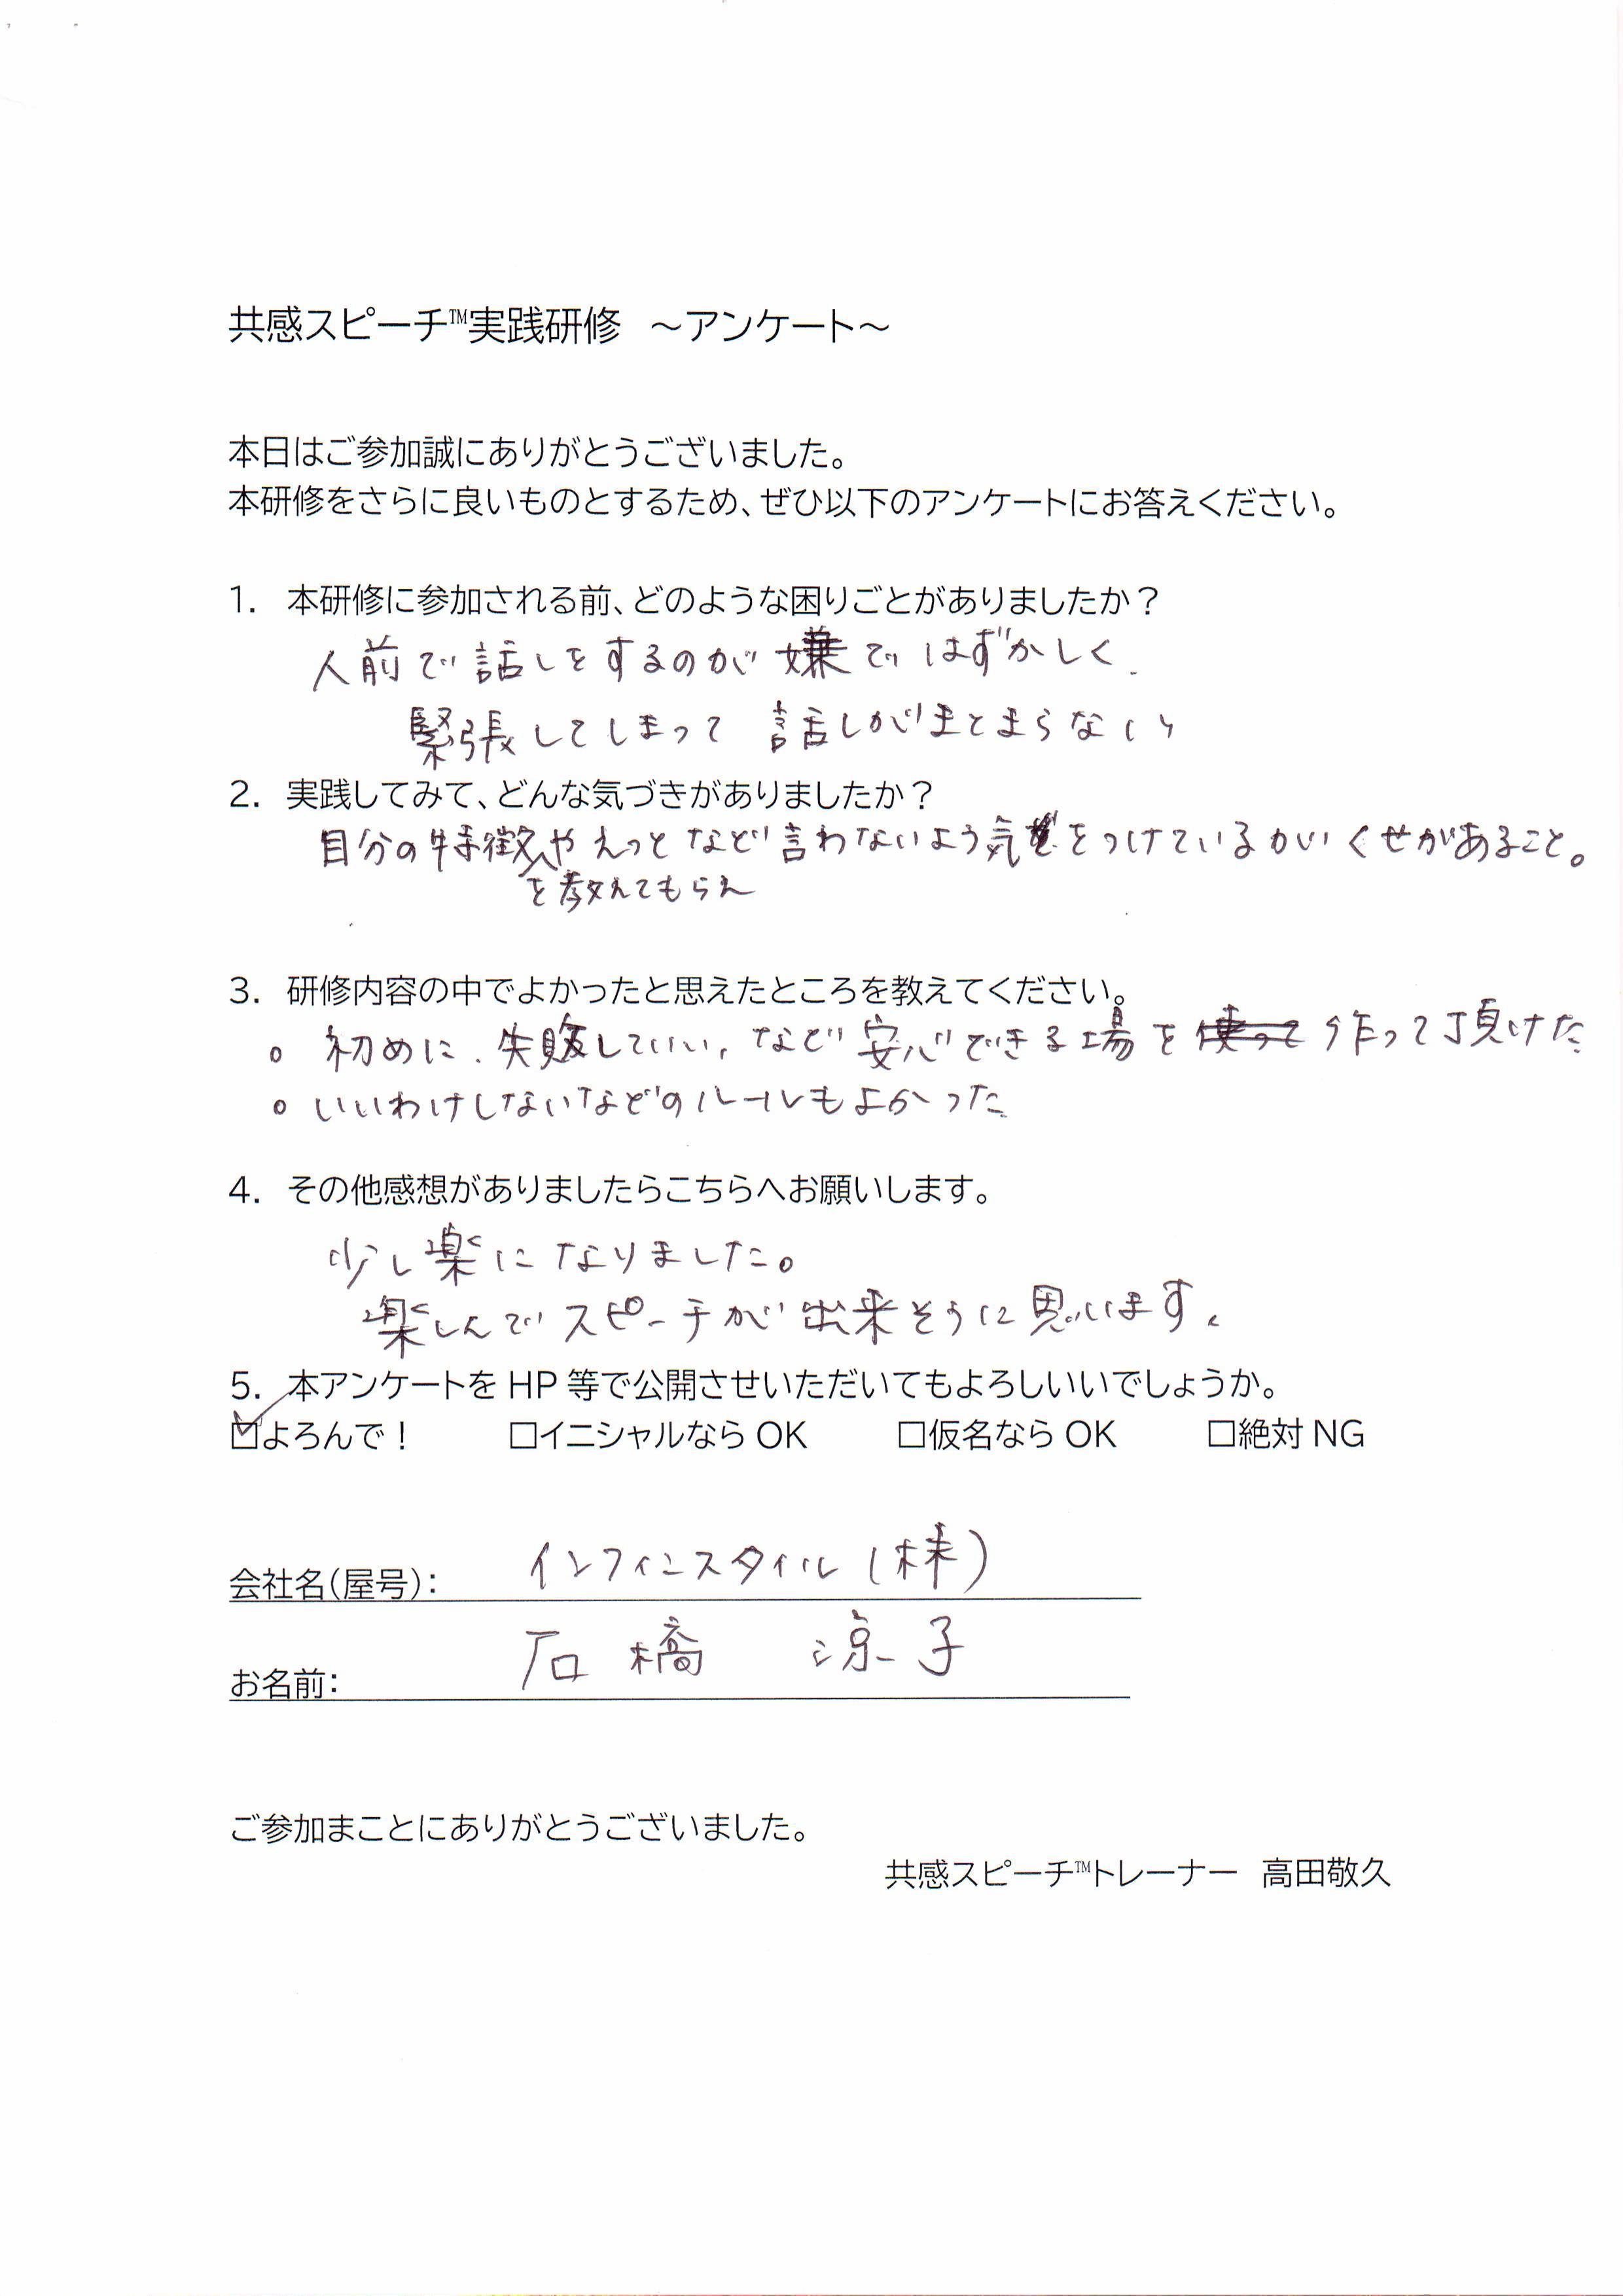 共感スピーチ™実践研修　～アンケート～
本日はご参加誠にありがとうございました。
本研修をさらに良いものとするため、ぜひ以下のアンケートにお答えください。
1. 本研修に参加される前、どのような困りごとがありましたか？
人前で話しをするのが嫌で はずかしく
緊張してしまって 話しがまとまらない
2. 実践してみて、どんな気づきがありましたか？
自分の特徴や えっと など 言わないよう気をつけているがいくせがあること。
を教えてもらえ
3. 研修内容の中でよかったと思えたところを教えてください。
○ 初めに、失敗していい、など 安心できる場を 使って 作って頂けた
○ いいわけしないなどのルールもよかった
4. その他感想がありましたらこちらへお願いします。
少し楽になりました。
楽しんでスピーチが出来そうに思います。
5. 本アンケートを HP 等で公開させいただいてもよろしいいでしょうか。
☑よろんで！　□イニシャルなら OK　□仮名なら OK　□絶対 NG
会社名(屋号)： インフィニスタイル(株)
お名前： 石橋 涼子
ご参加まことにありがとうございました。
共感スピーチ™トレーナー　高田敬久